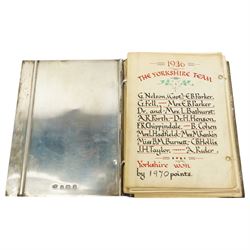 1936
THE YORKSHIRE TEAM
G. Nelson (Capt) — E.B. Parker.
G. Fell — Mrs E.B. Parker
Dr. and Mrs L. Bathurst.
A.R. Forth — Dr. H. Henson.
F.R. Chippindale — B. Cohen
Mrs L. Hadfield — Mrs M. Rankin
Miss B.M. Burnett — C.B. Hollis
J.H. Taylor — A. Ryder.
Yorkshire won
by 1970 points.